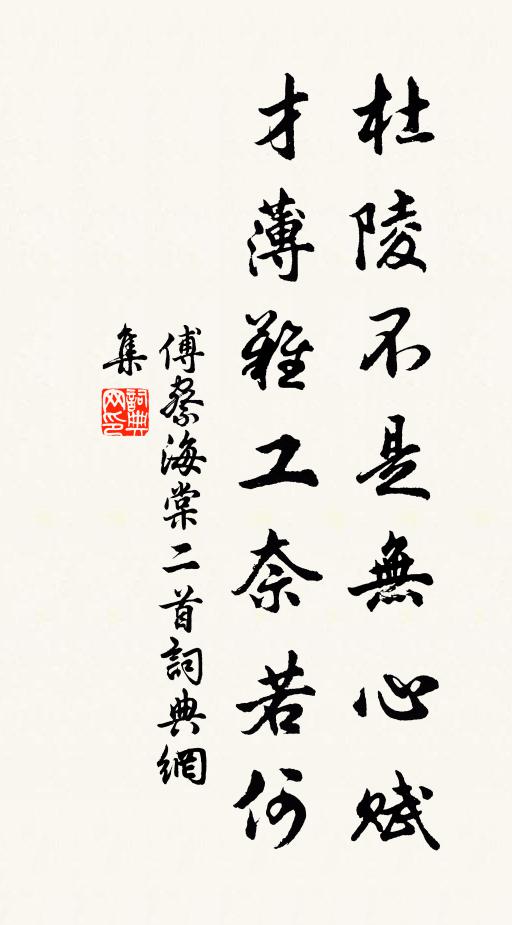 杜陵不是無心賦
才薄難工奈若何
傅察海棠二首詞典網
集
詞典
网印